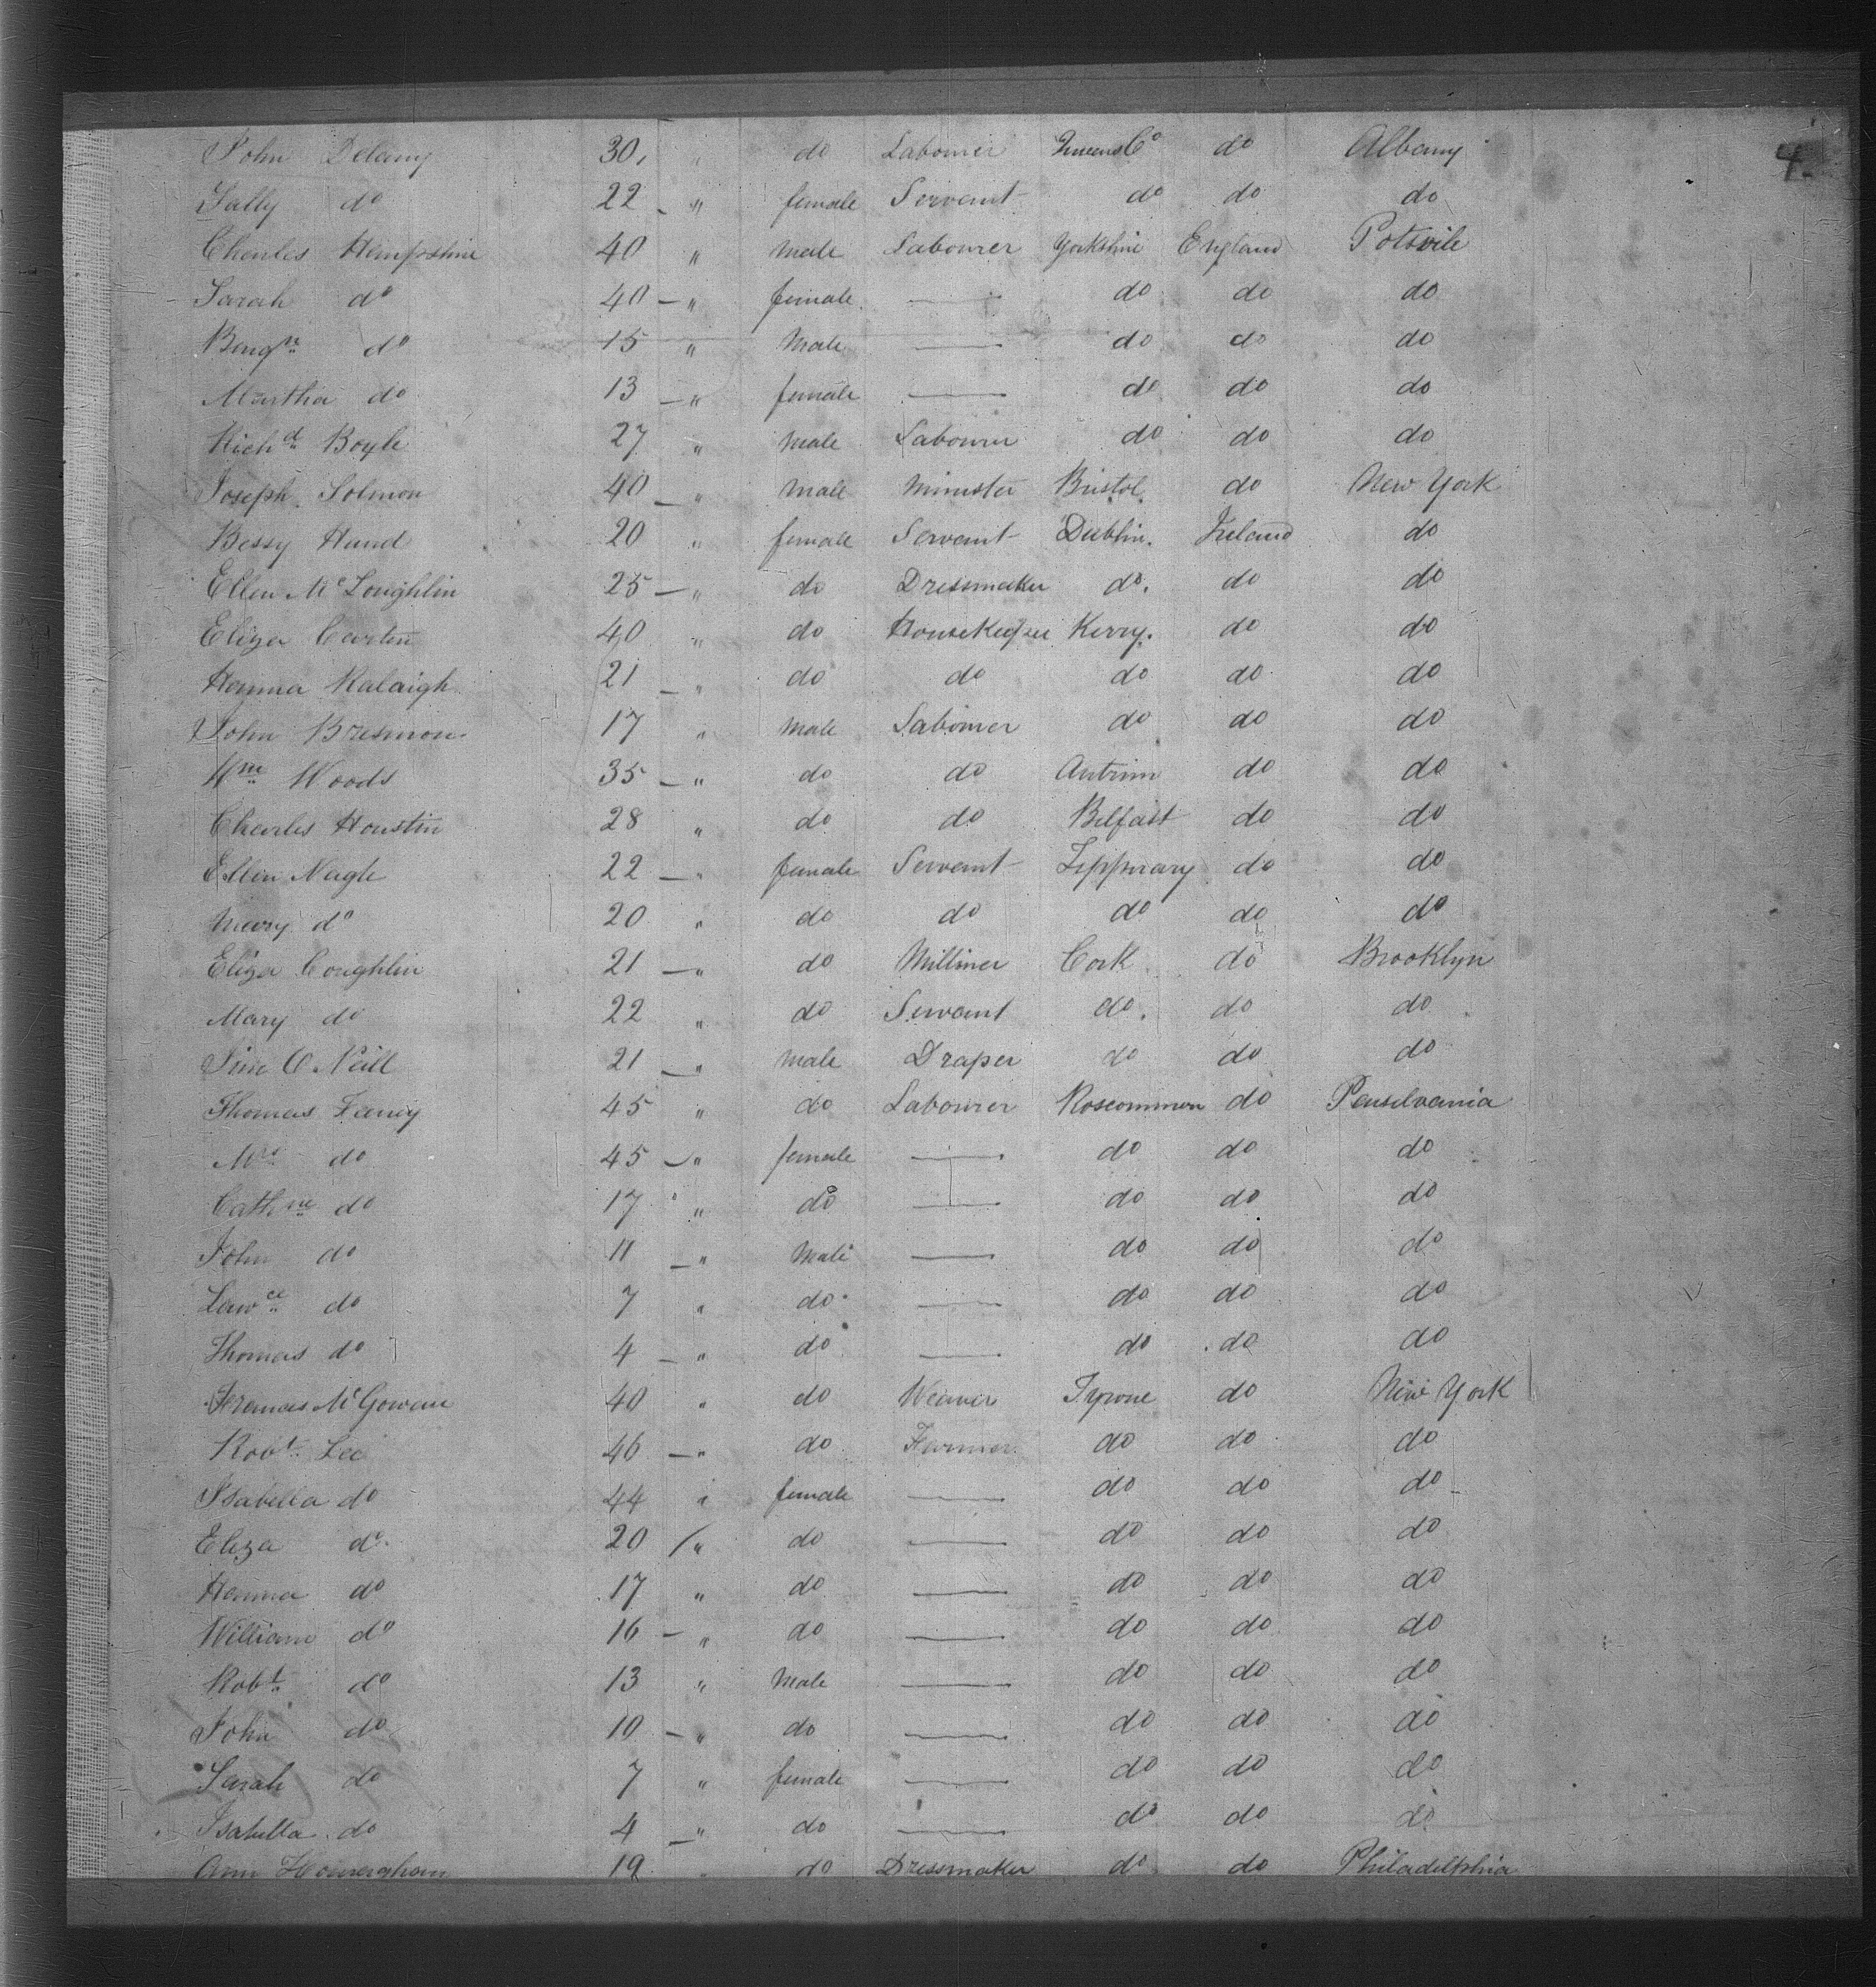 4.
John Delany 30, " do Labourer Queens Co do Albany
Sally do 22 " female Servant do do do
Charles Hempshire 40 " male Labourer Yorkshire England Potsvile
Sarah do 40 " female — do do do
Benjn do 15 " Male — do do do
Martha do 13 " female — do do do
Richd Boyle 27 " Male Labourer do do do
Joseph Solmon 40 " male Minister Bristol do New York
Bessy Hand 20 " female Servant Dublin. Ireland do
Ellen McLoughlin 25 " do Dressmaker do. do do
Eliza Cartin 40 " do HouseKeeper Kerry. do do
Hanna Ralaigh 21 " do do do do do
John Bresnon 17 " Male Labourer do do do
Wm Woods 35 " do do Antrim do do
Charles Houstin 28 " do do Belfast do do
Ellen Nagle 22 " female Servant Tipprary do do
Mary do 20 " do do do do do
Eliza Coughlin 21 " do Milliner Cork do Brooklyn
Mary do 22 " do Servant do. do do
Jim O Neill 21 " Male Draper do do do
Thomas Feeney 45 " do Labourer Roscommon do Pensilvania
Mrs do 45 " female — do do do
Cathne do 17 " do — do do do
John do 11 " Male — do do do
Lawce do 7 " do — do do do
Thomas do 4 " do — do do do
Frances McGowan 40 " do Weaver Tyrone do New York
Robt Lee 46 " do Farmer do do do
Isabella do 44 " female — do do do
Eliza do 20 " do — do do do
Hanna do 17 " do — do do do
William do 16 " do — do do do
Robt do 13 " Male — do do do
John do 10 " do — do do do
Sarah do 7 " female — do do do
Isabella do 4 " do — do do do
Ann 19 " do Dressmaker do do Philadelphia